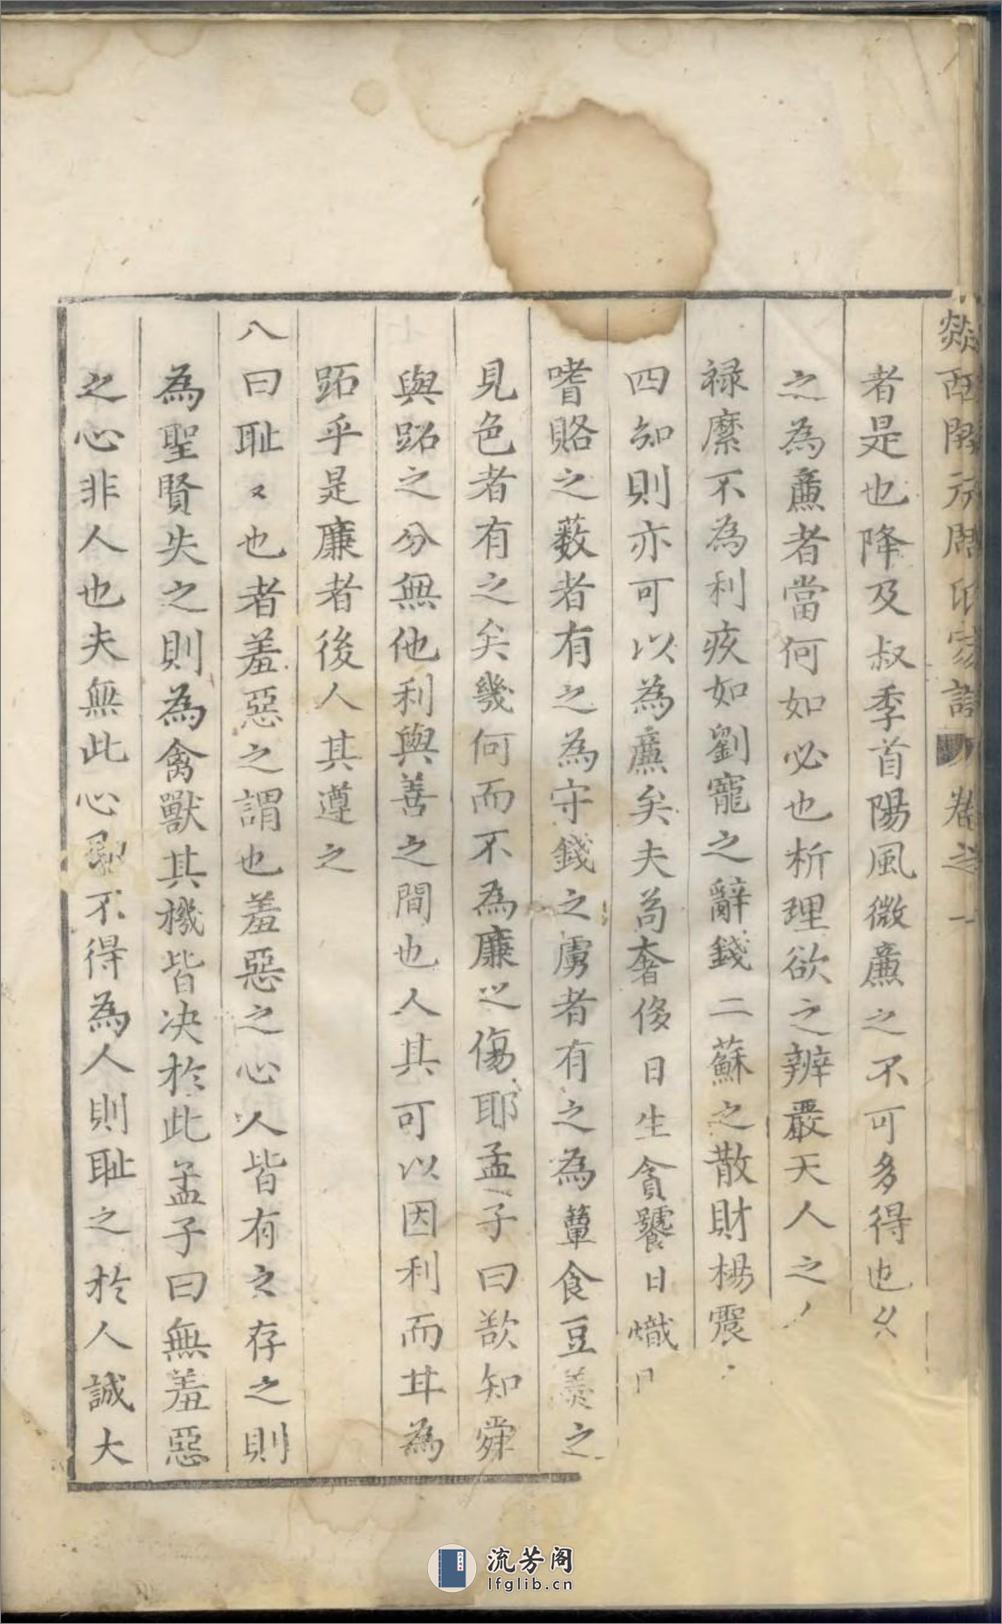 者是也降及叔季首陽風微廉之不可多得也久
之為廉者當何如必也析理欲之辨嚴天人之
祿縻不為利疚如劉寵之辭錢二蘇之散財楊震
四知則亦可以為廉矣夫苟奢侈日生貪饕日熾
嗜賂之藪者有之為守錢之虜者有之為簞食豆羹之
見色者有之矣幾何而不為廉之傷耶孟子曰欲知舜
與跖之分無他利與善之間也人其可以因利而甘為
跖乎是廉者後人其遵之
八曰恥〻也者羞惡之謂也羞惡之心人皆有之存之則
為聖賢失之則為禽獸其機皆决於此孟子曰無羞惡
之心非人也夫無此心不得為人則恥之於人誠大
卷之一
流芳阁
lfglib.cn